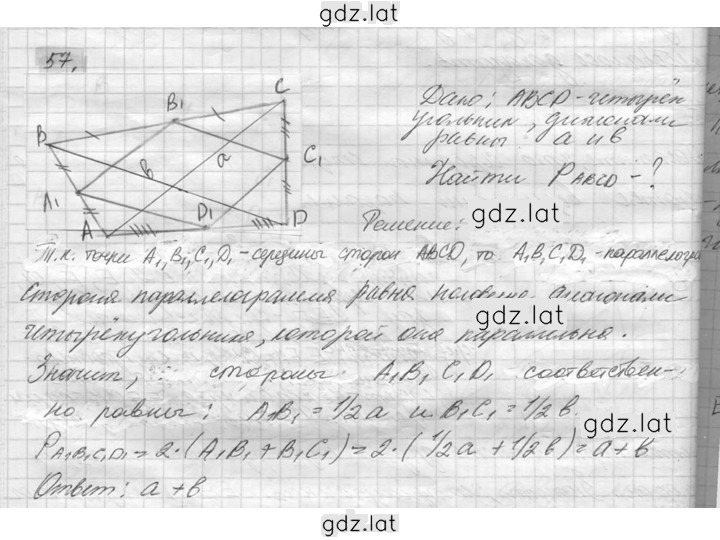 gdz.lat
57.
Дано: ABCD - четырёх
угольник, диагонали
равны a и b
Найти P ABCD - ?
Решение:
gdz.lat
B
B1
C
C1
D
D1
A
A1
a
b
Т.к. точки A1, B1, C1, D1 - середины сторон ABCD, то A1B1C1D1 - параллелогра
сторона параллелограмма равна половине диагонали
четырёхугольника, которой она параллельна.
gdz.lat
Значит, стороны A1B1C1D1 соответствен-
но равны: A1B1 = 1/2 a и B1C1 = 1/2 b.
gdz.lat
P A1B1C1D1 = 2·(A1B1 + B1C1) = 2·(1/2 a + 1/2 b) = a + b
Ответ: a + b
gdz.lat